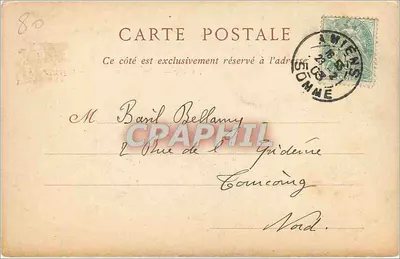 80
CARTE POSTALE
Ce côté est exclusivement réservé à l'adresse
AMIENS
SOMME
CPAPHIL
M Basil Bellamy
2 Rue de l'Yideine
Tourcoing
Nord.